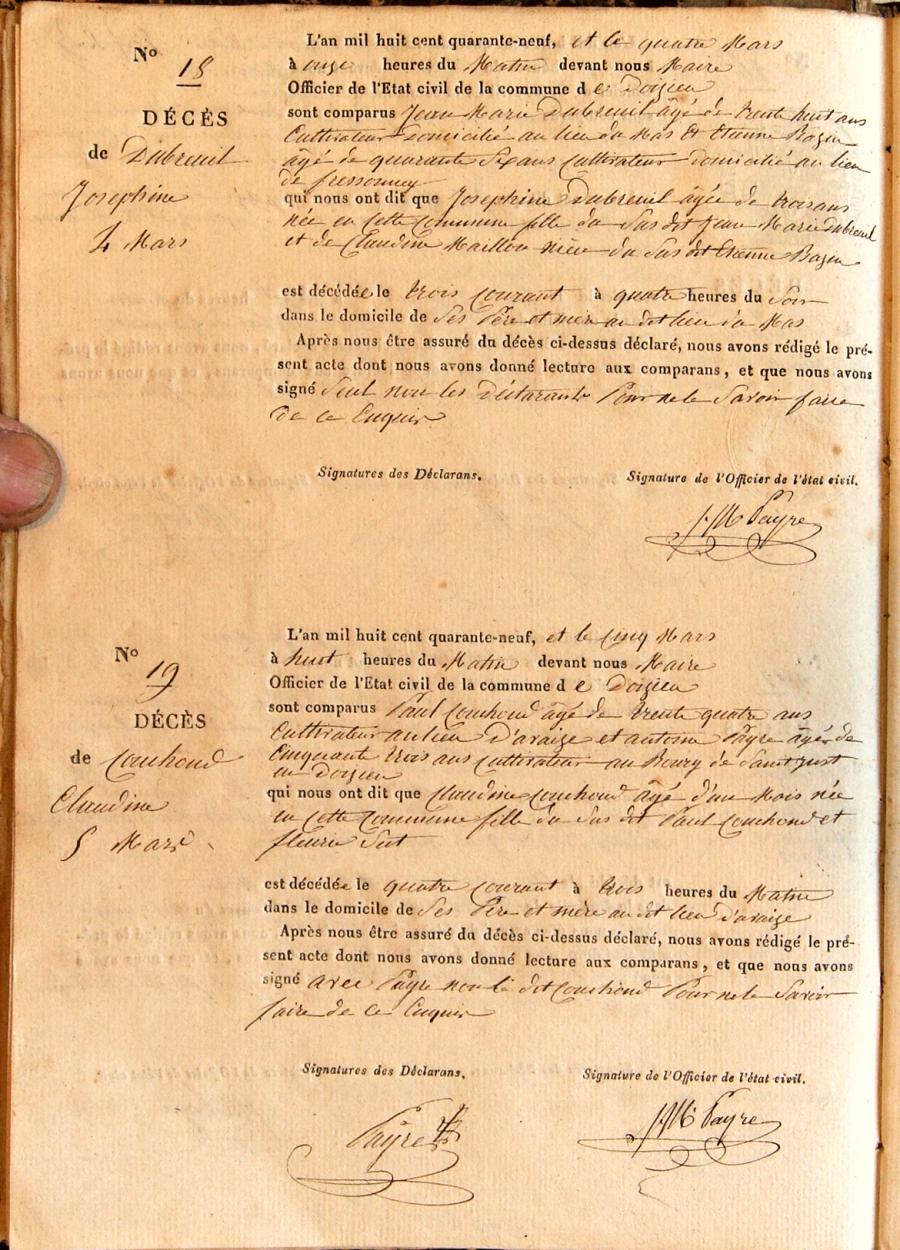 No
18
DÉCÈS
de Dubreuil
Josephine
4 Mars
L'an mil huit cent quarante-neuf, et le quatre Mars
à onze heures du Matin devant nous Maire
Officier de l'Etat civil de la commune d e Doizieu
sont comparus Jean Marie Dubreuil âgé de trente huit ans
Cultivateur Domicilié au lieu du Mas et Etienne Bazin
âgé de quarante Six ans Cultivateur domicilié au lieu
de
qui nous ont dit que Josephine Dubreuil âgée de trois ans
née en Cette Commune fille du Sus dit Jean Marie Dubreuil
et de Claudine Maillon nièce du Sus dit Etienne Bazin
est décédée le trois Courant à quatre heures du Soir
dans le domicile de Ses Père et mère au dit lieu du Mas
Après nous être assuré du décès ci-dessus déclaré, nous avons rédigé le pré-
sent acte dont nous avons donné lecture aux comparans, et que nous avons
signé Seul non les Déclarants Pour ne le Savoir faire
de ce Enquis
Signatures des Déclarans.
Signature de l'Officier de l'état civil.
JM Payre
No
19
DÉCÈS
de Couhond
Claudine
5 Mars
L'an mil huit cent quarante-neuf, et le Cinq Mars
à huit heures du Matin devant nous Maire
Officier de l'Etat civil de la commune d e Doizieu
sont comparus Paul Couhond âgé de trente quatre ans
Cultivateur au lieu D'araize et antoine Payre âgé de
Cinquante trois ans Cultivateur au Bourg de Saint Just
en Doizieu
qui nous ont dit que Claudine Couhond âgé d'un Mois née
en Cette Commune fille du Sus dit Paul Couhond et
fleurie
est décédée le quatre Courant à trois heures du Matin
dans le domicile de Ses Père et mère au dit lieu d'araize
Après nous être assuré du décès ci-dessus déclaré, nous avons rédigé le pré-
sent acte dont nous avons donné lecture aux comparans, et que nous avons
signé avec Payre non le dit Couhond Pour ne le Savoir
faire de ce Enquis
Signatures des Déclarans.
Signature de l'Officier de l'état civil.
Payre
JM Payre